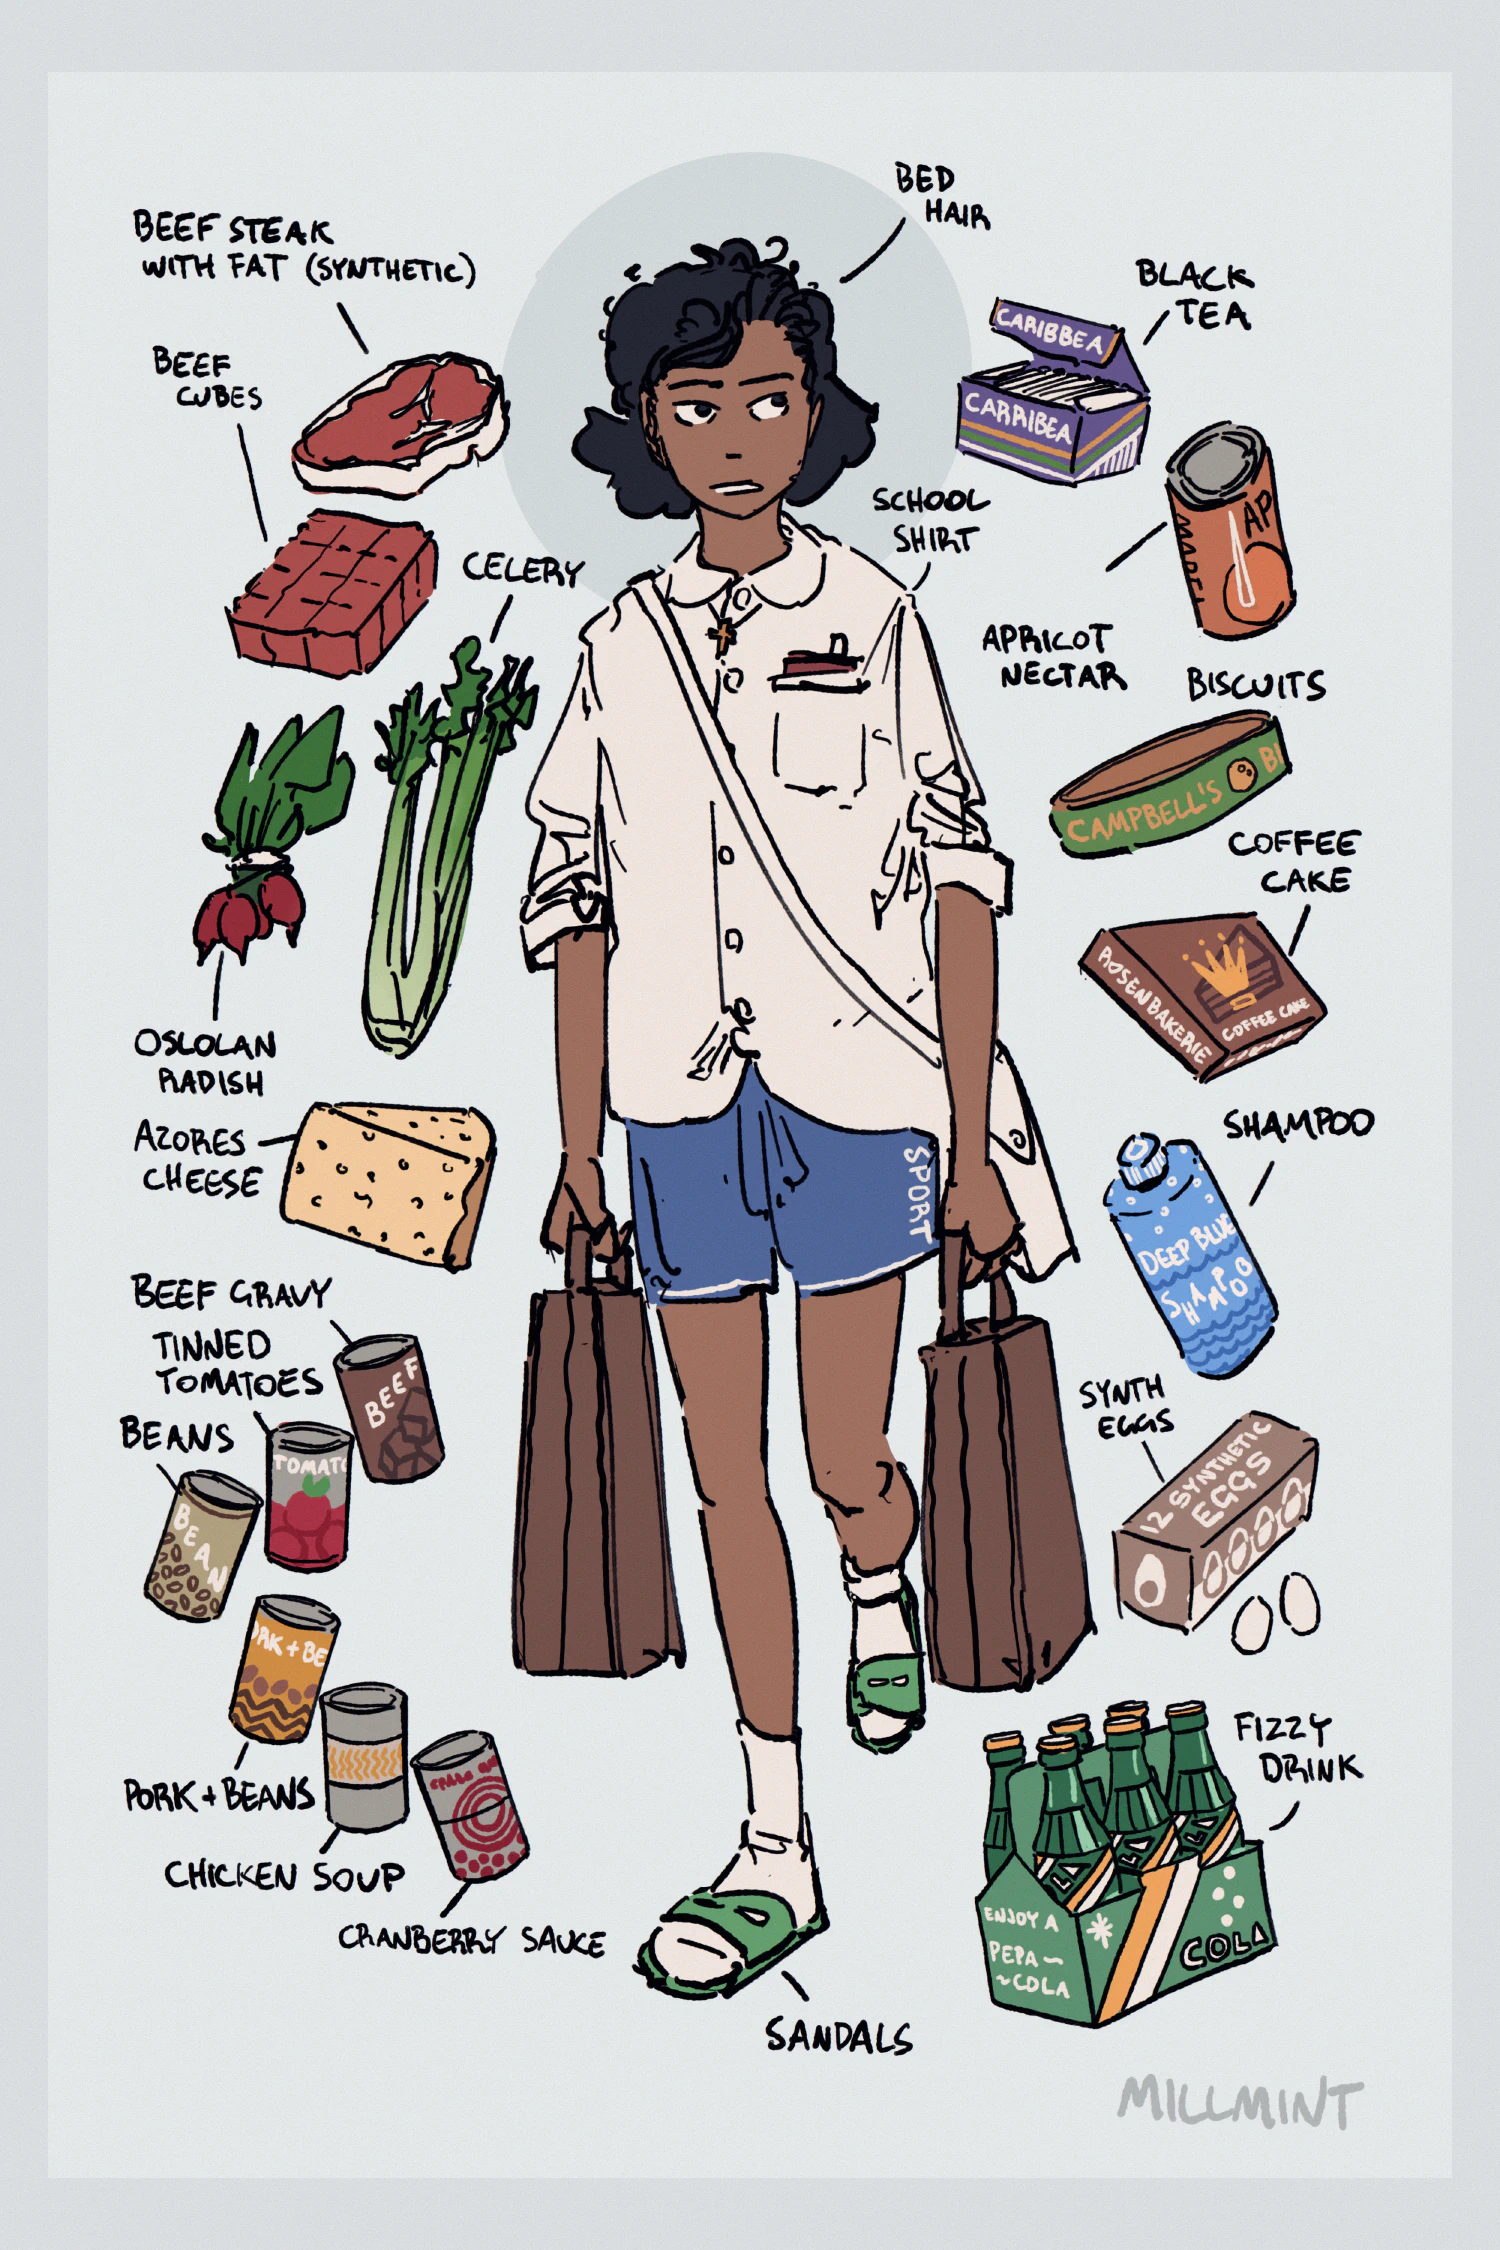 BED
HAIR
BEEF STEAK
WITH FAT (SYNTHETIC)
BLACK
TEA
CARIBBEA
CARRIBEA
BEEF
CUBES
SCHOOL
SHIRT
CELERY
AP
APRICOT
NECTAR
BISCUITS
CAMPBELL'S BI
COFFEE
CAKE
ROSENBAKERIE
COFFEE CAKE
OSLOLAN
RADISH
AZORES
CHEESE
SHAMPOO
SPORT
DEEP BLUE
SHAMPOO
BEEF GRAVY
TINNED
TOMATOES
BEEF
BEANS
TOMATO
BEAN
SYNTH
EGGS
12 SYNTHETIC
EGGS
ORK + BE
PORK + BEANS
CHICKEN SOUP
CRANBERRY SAUCE
FIZZY
DRINK
ENJOY A
PEPA ~
~COLA
COLA
SANDALS
MILLMINT